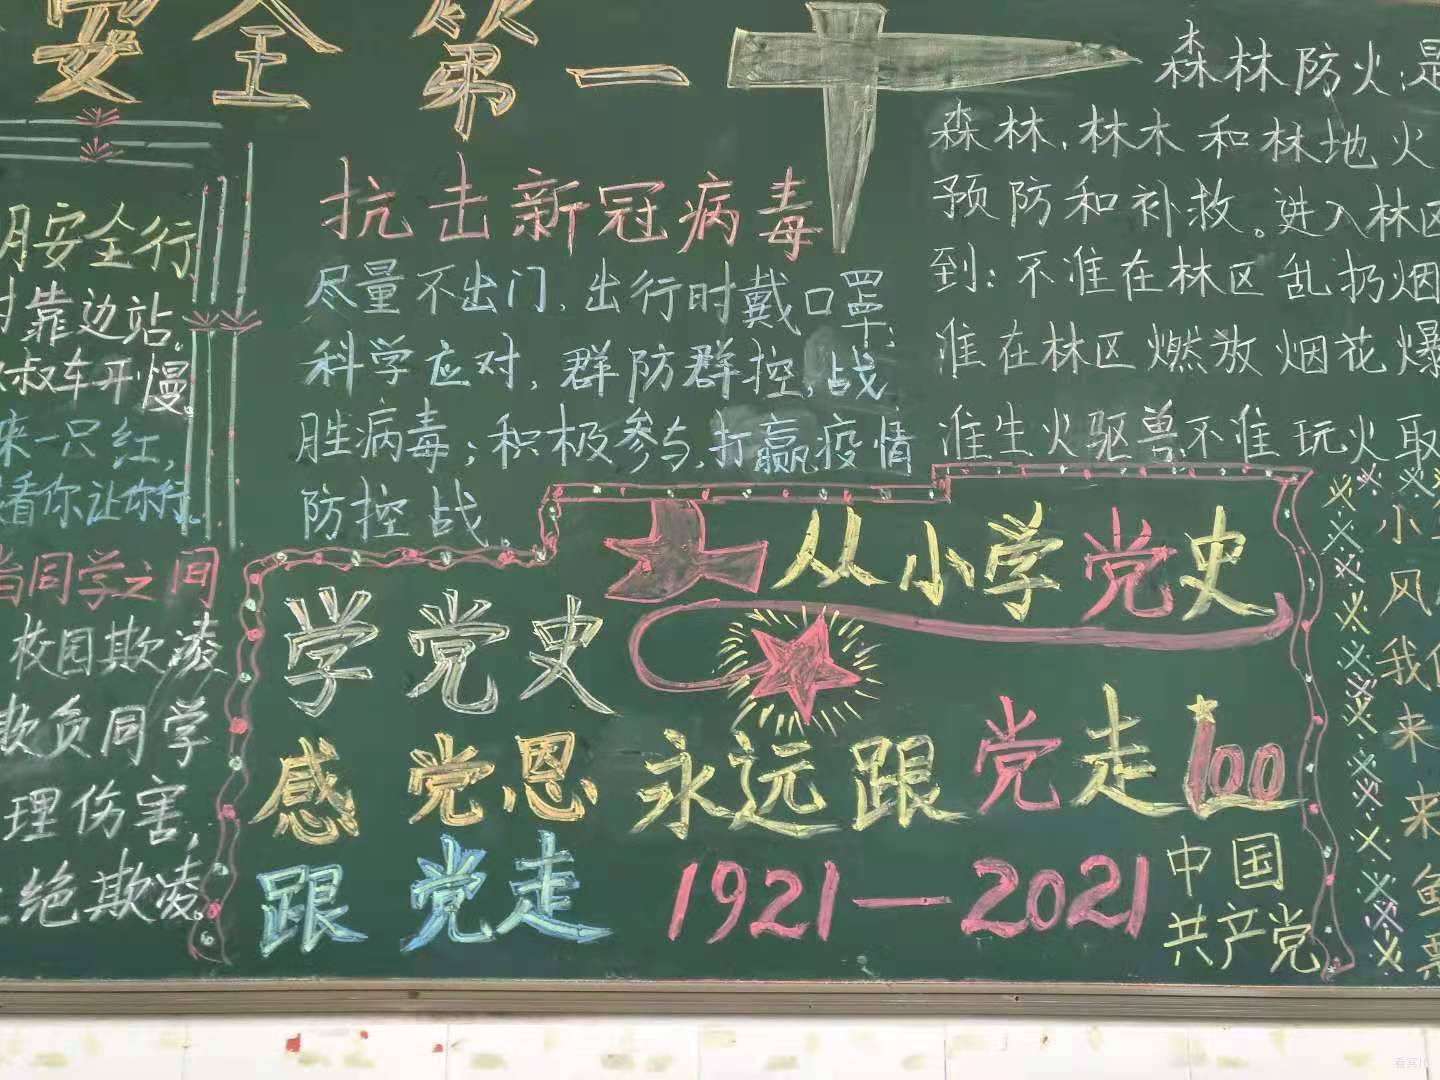 安全第一
月安全行
时靠边站，
叔车开慢。
来一只红，
看你让你行。
同学之间
校园欺凌
欺负同学
理伤害，
绝欺凌。
抗击新冠病毒
尽量不出门，出行时戴口罩；
科学应对，群防群控，战
胜病毒；积极参与，打赢疫情
防控战
森林防火，是
森林、林木和林地火
预防和补救。进入林区
到：不准在林区乱扔烟
准在林区燃放烟花爆
准生火驱兽不准玩火取
学党史
感党恩
跟党走
从小学党史
永远跟党走100
1921—2021
中国
共产党
小
风
我们
来
来